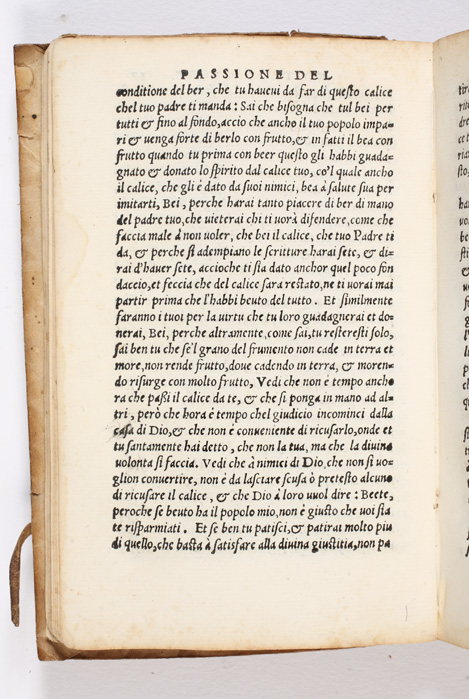 PASSIONE DEL
conditione del ber, che tu haueui da far di questo calice
chel tuo padre ti manda : Sai che bisogna che tul bei per
tutti & fino al fondo, accio che ancho il tuo popolo impa-
ri & uenga forte di berlo con frutto, & in fatti il bea con
frutto quando tu prima con beer questo gli habbi guada-
gnato & donato lo spirito dal calice tuo, co'l quale ancho
il calice, che gli è dato da suoi nimici, bea à salute sua per
imitarti, Bei, perche harai tanto piacere di ber di mano
del padre tuo, che uieterai chi ti uorà difendere, come che
faccia male à non uoler, che bei il calice, che tuo Padre ti
da, & perche si adempiano le scritture harai sete, & di-
rai d'hauer sete, accioche ti sia dato anchor quel poco fon
daccio, et feccia che del calice sara restato, ne ti uorai mai
partir prima che l'habbi beuto del tutto . Et similmente
faranno i tuoi per la uirtu che tu loro guadagnerai et do-
nerai, Bei, perche altramente, come sai, tu resteresti solo,
sai ben tu che se'l grano del frumento non cade in terra et
more, non rende frutto, doue cadendo in terra, & moren-
do risurge con molto frutto, Vedi che non è tempo ancho
ra che passi il calice da te, & che si ponga in mano ad al-
tri , però che hora è tempo chel giudicio incominci dalla
casa di Dio, & che non è conueniente di ricusarlo, onde et
tu santamente hai detto , che non la tua, ma che la diuina
uolonta si faccia. Vedi che à nimici di Dio, che non si uo-
glion conuertire, non è da lasciare scusa ò pretesto alcuno
di ricusare il calice , & che Dio à loro uuol dire : Beete,
peroche se beuto ha il popolo mio, non è giusto che uoi sia
te risparmiati . Et se ben tu patisci, & patirai molto piu
di quello, che basta à satisfare alla diuina giustitia, non pa